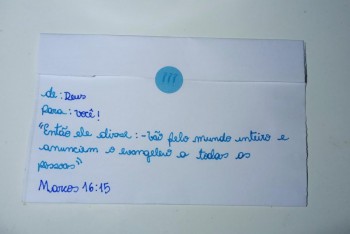 de: Deus
Para: Você!
"Então ele disse: -Vão pelo mundo inteiro e
anunciem o evangeleo a todas as
pessoas"
Marcos 16:15